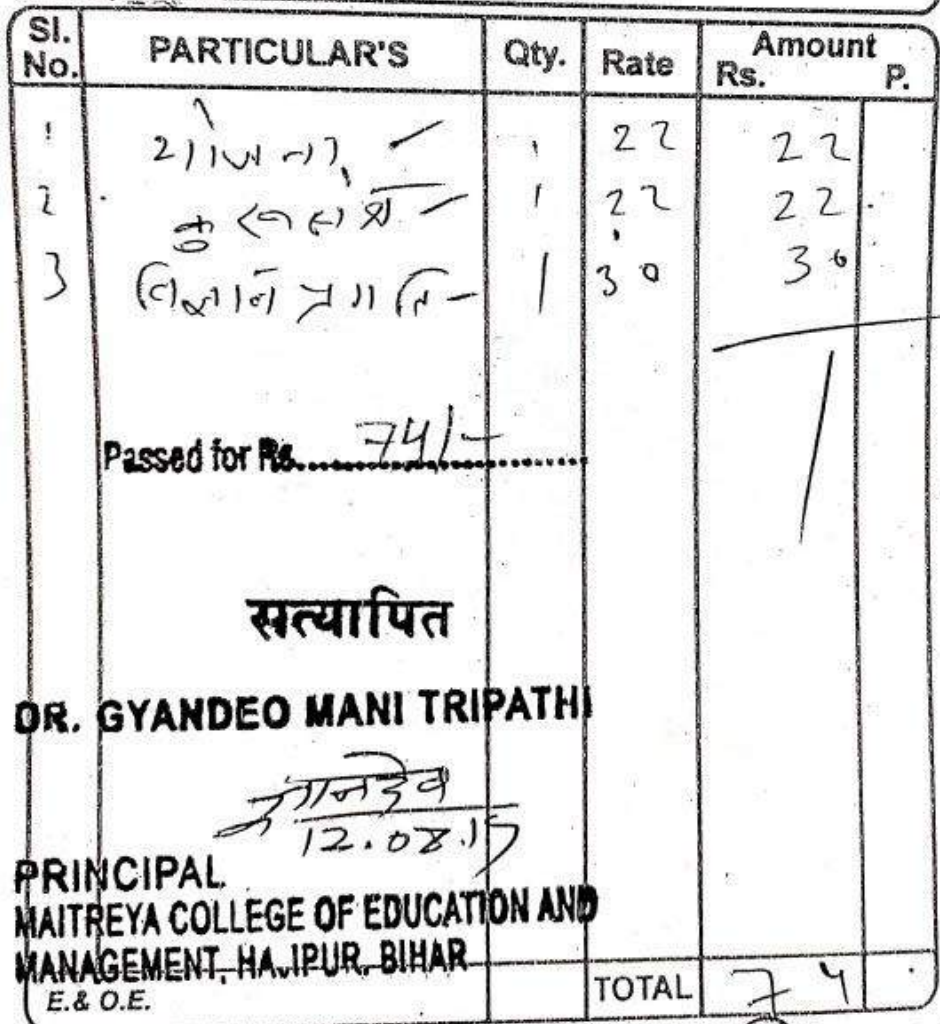 Sl. No. PARTICULAR'S Qty. Rate Amount Rs. P.
1 योजना - 1 22 22
2 कुरुक्षेत्र - 1 22 22
3 विज्ञान प्रगति - 1 30 30
Passed for Rs. 74/-
सत्यापित
DR. GYANDEO MANI TRIPATHI
ज्ञानदेव
12.08.17
PRINCIPAL
MAITREYA COLLEGE OF EDUCATION AND
MANAGEMENT, HAJIPUR, BIHAR
E.& O.E. TOTAL 74